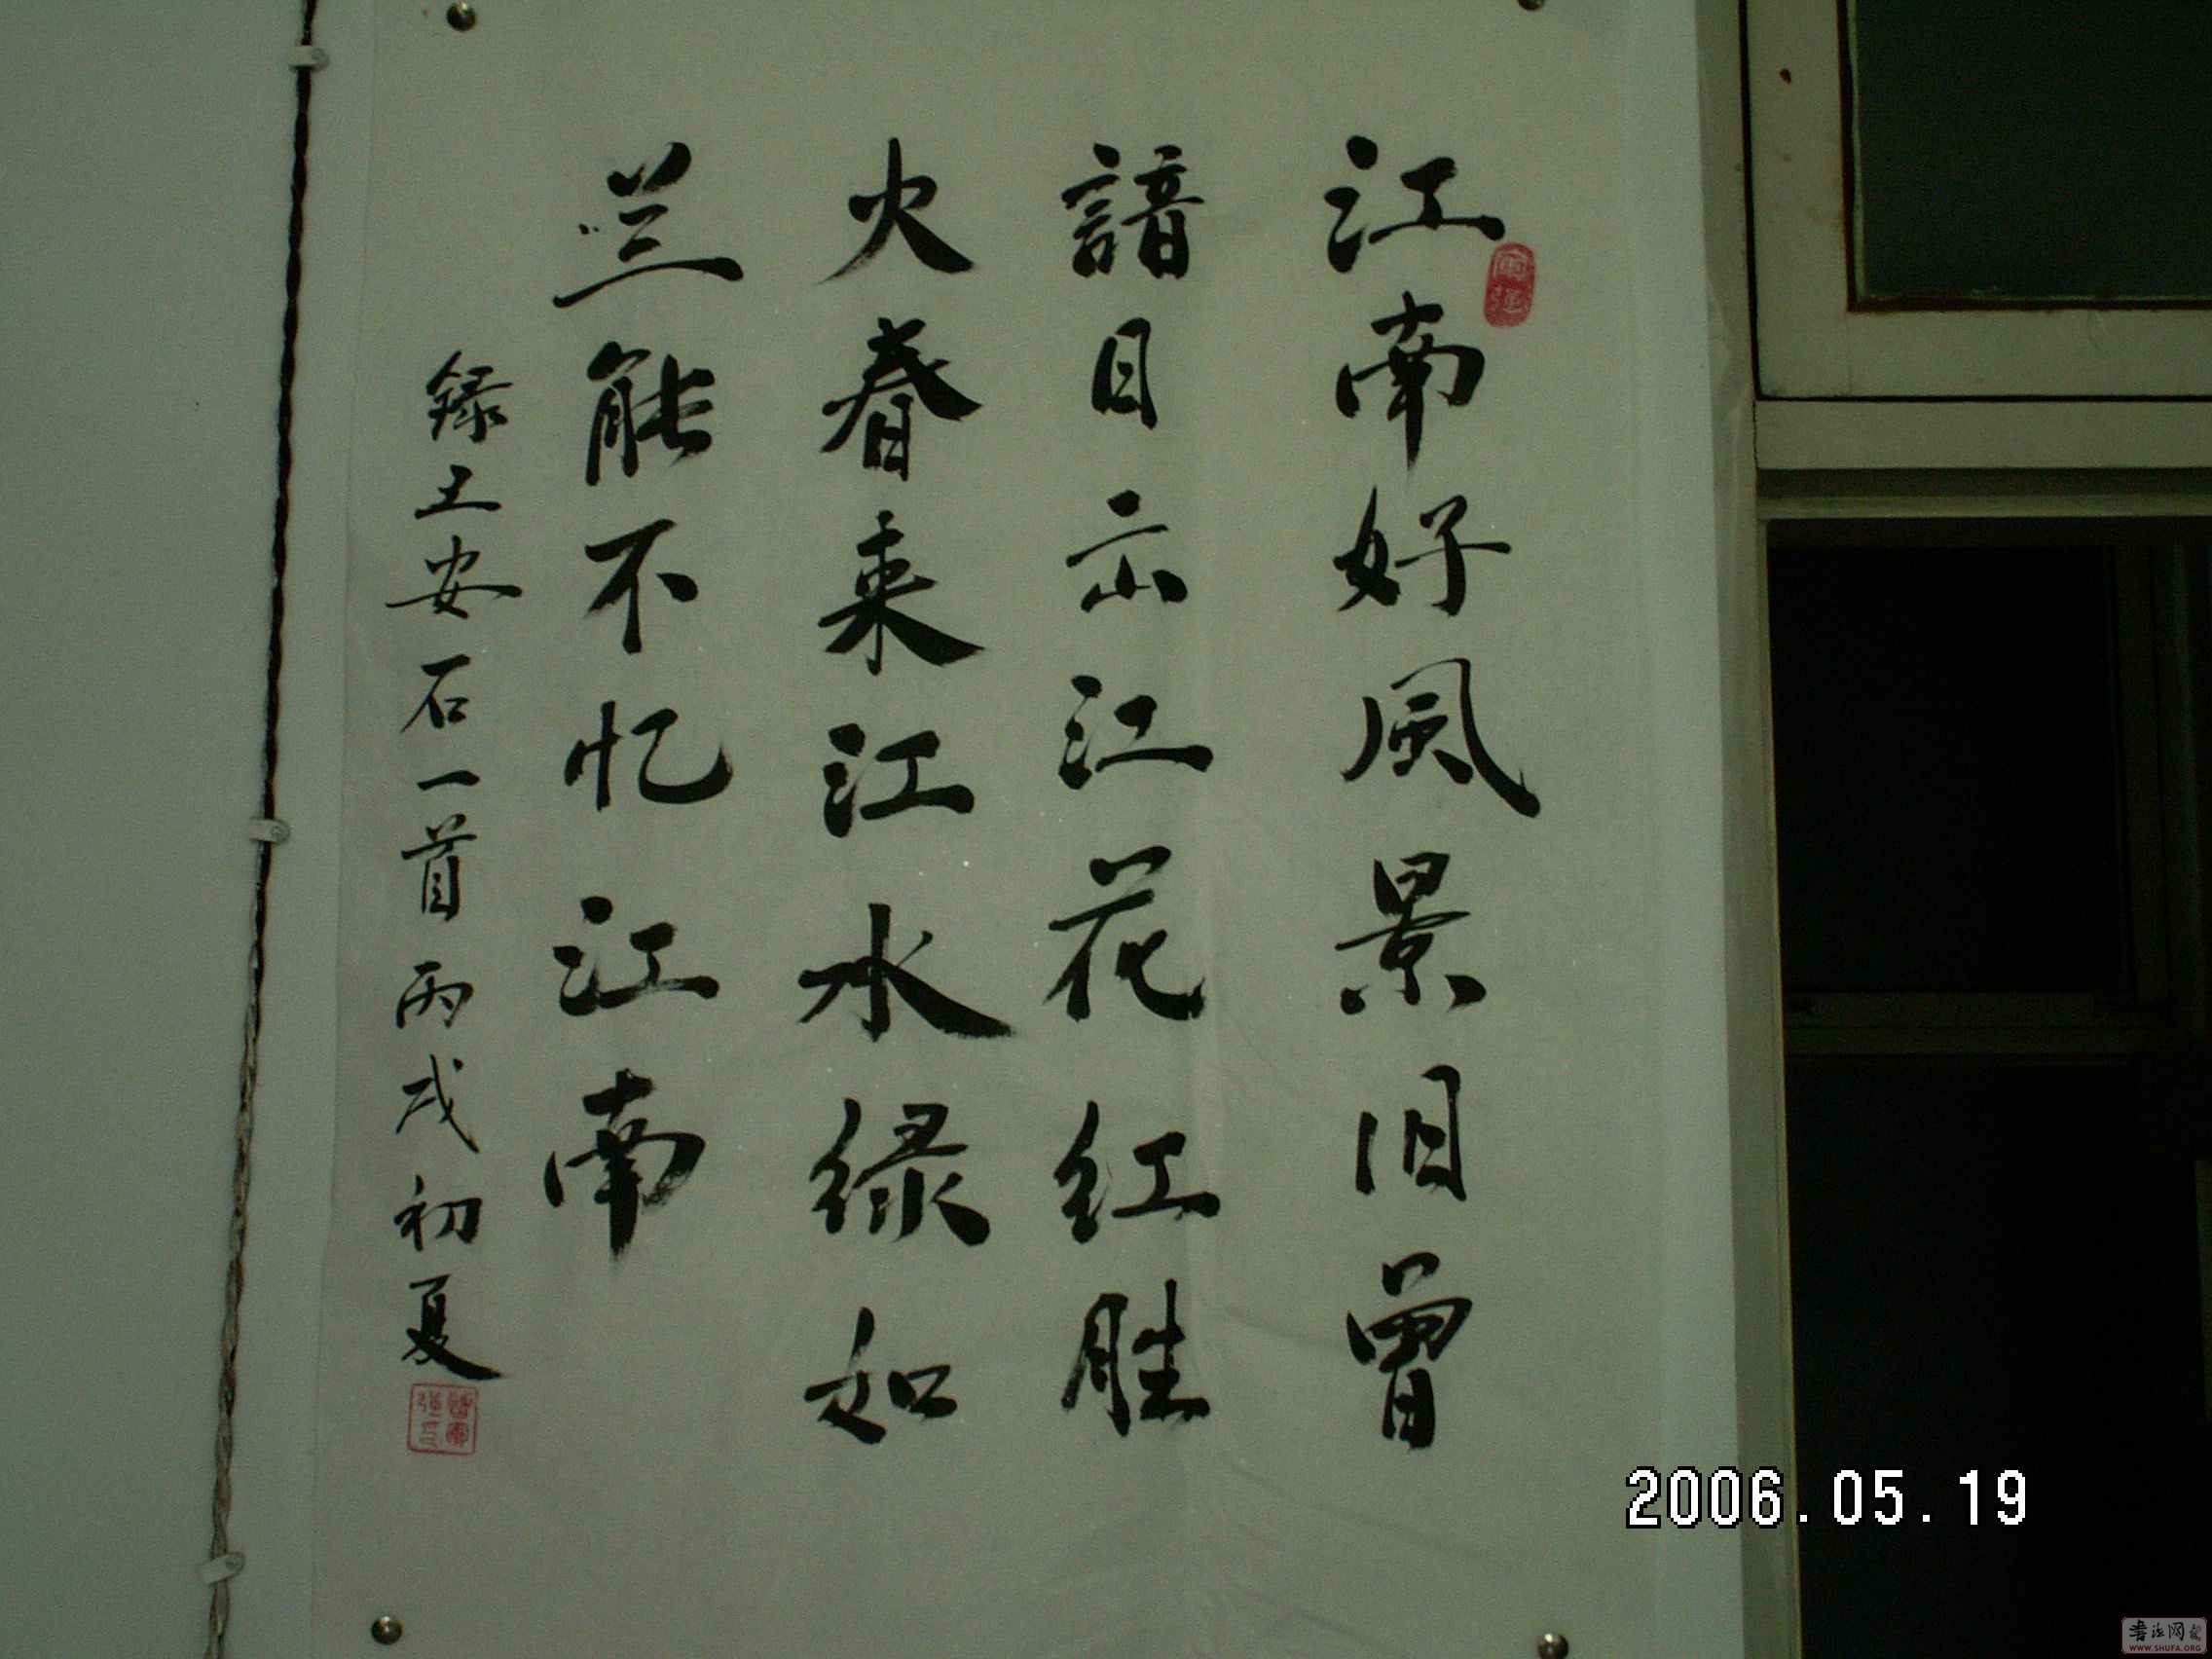 江南好风景旧曾
谙目出江花红胜
火春来江水绿如
兰能不忆江南
録王安石一首丙戌初夏
2006.05.19
书法网
WWW.SHUFA.ORG